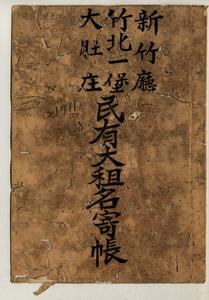 新竹廳
竹北一堡
大肚庄
民有大租名寄帳